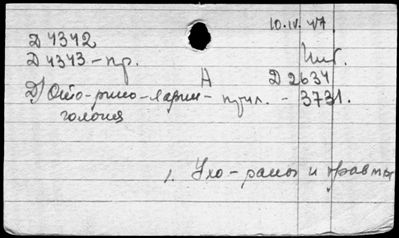 10.IV.47
Д 4342
Д 4343 - пр. Инг.
А Д 2634
Д) Ото-рино-ларин- пуил. - 3731.
гология
1. Ухо - раны и травмы